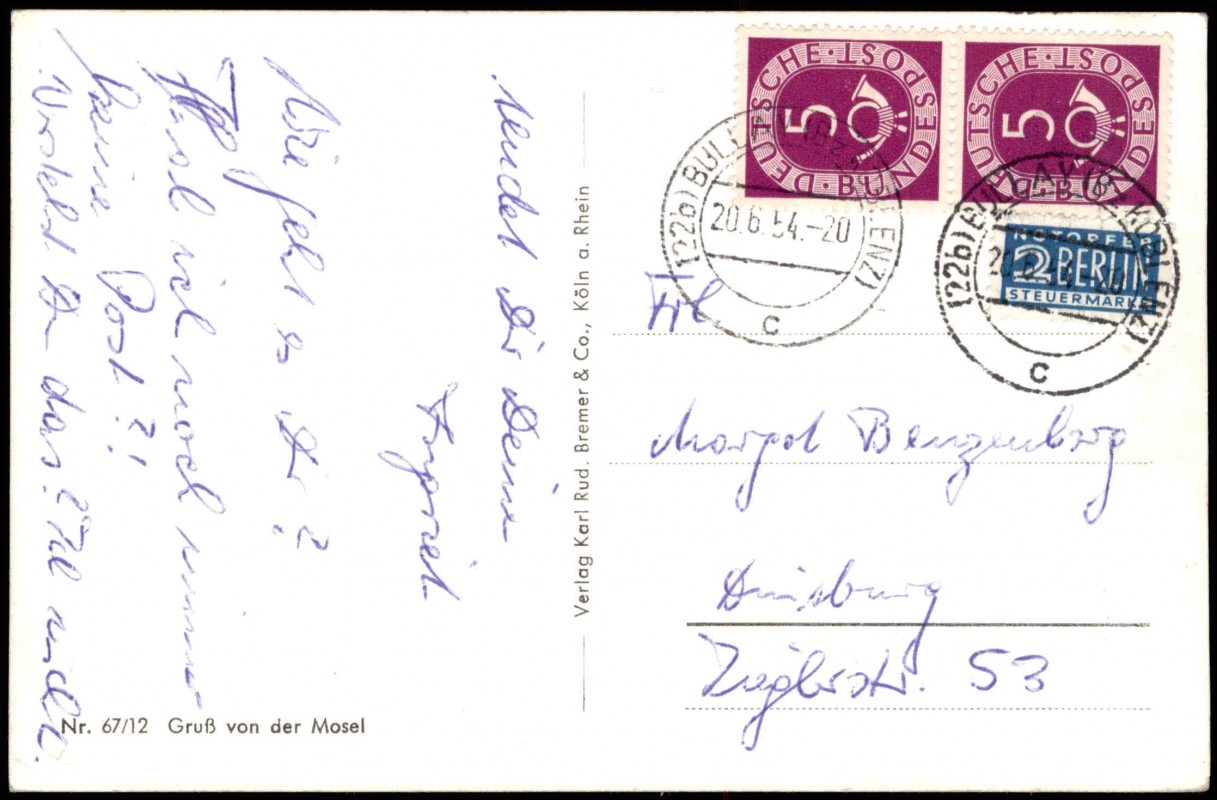 sendet Dir Deine
Wie geht es Dir?
ich noch immer
keine Post?!
Verstehst Du das? Ich nicht.
Nr. 67/12 Gruß von der Mosel
Verlag Karl Rud. Bremer & Co., Köln a. Rhein
DEUTSCHE BUNDESPOST
5
DEUTSCHE BUNDESPOST
5
NOTOPFER
2 BERLIN
STEUERMARKE
(22b) BULLAY (BZ. KOBLENZ)
20.6.54.-20
c
(22b) BULLAY (BZ. KOBLENZ)
20.6.54.-20
c
Frl.
Margot Benzenberg
Duisburg
53